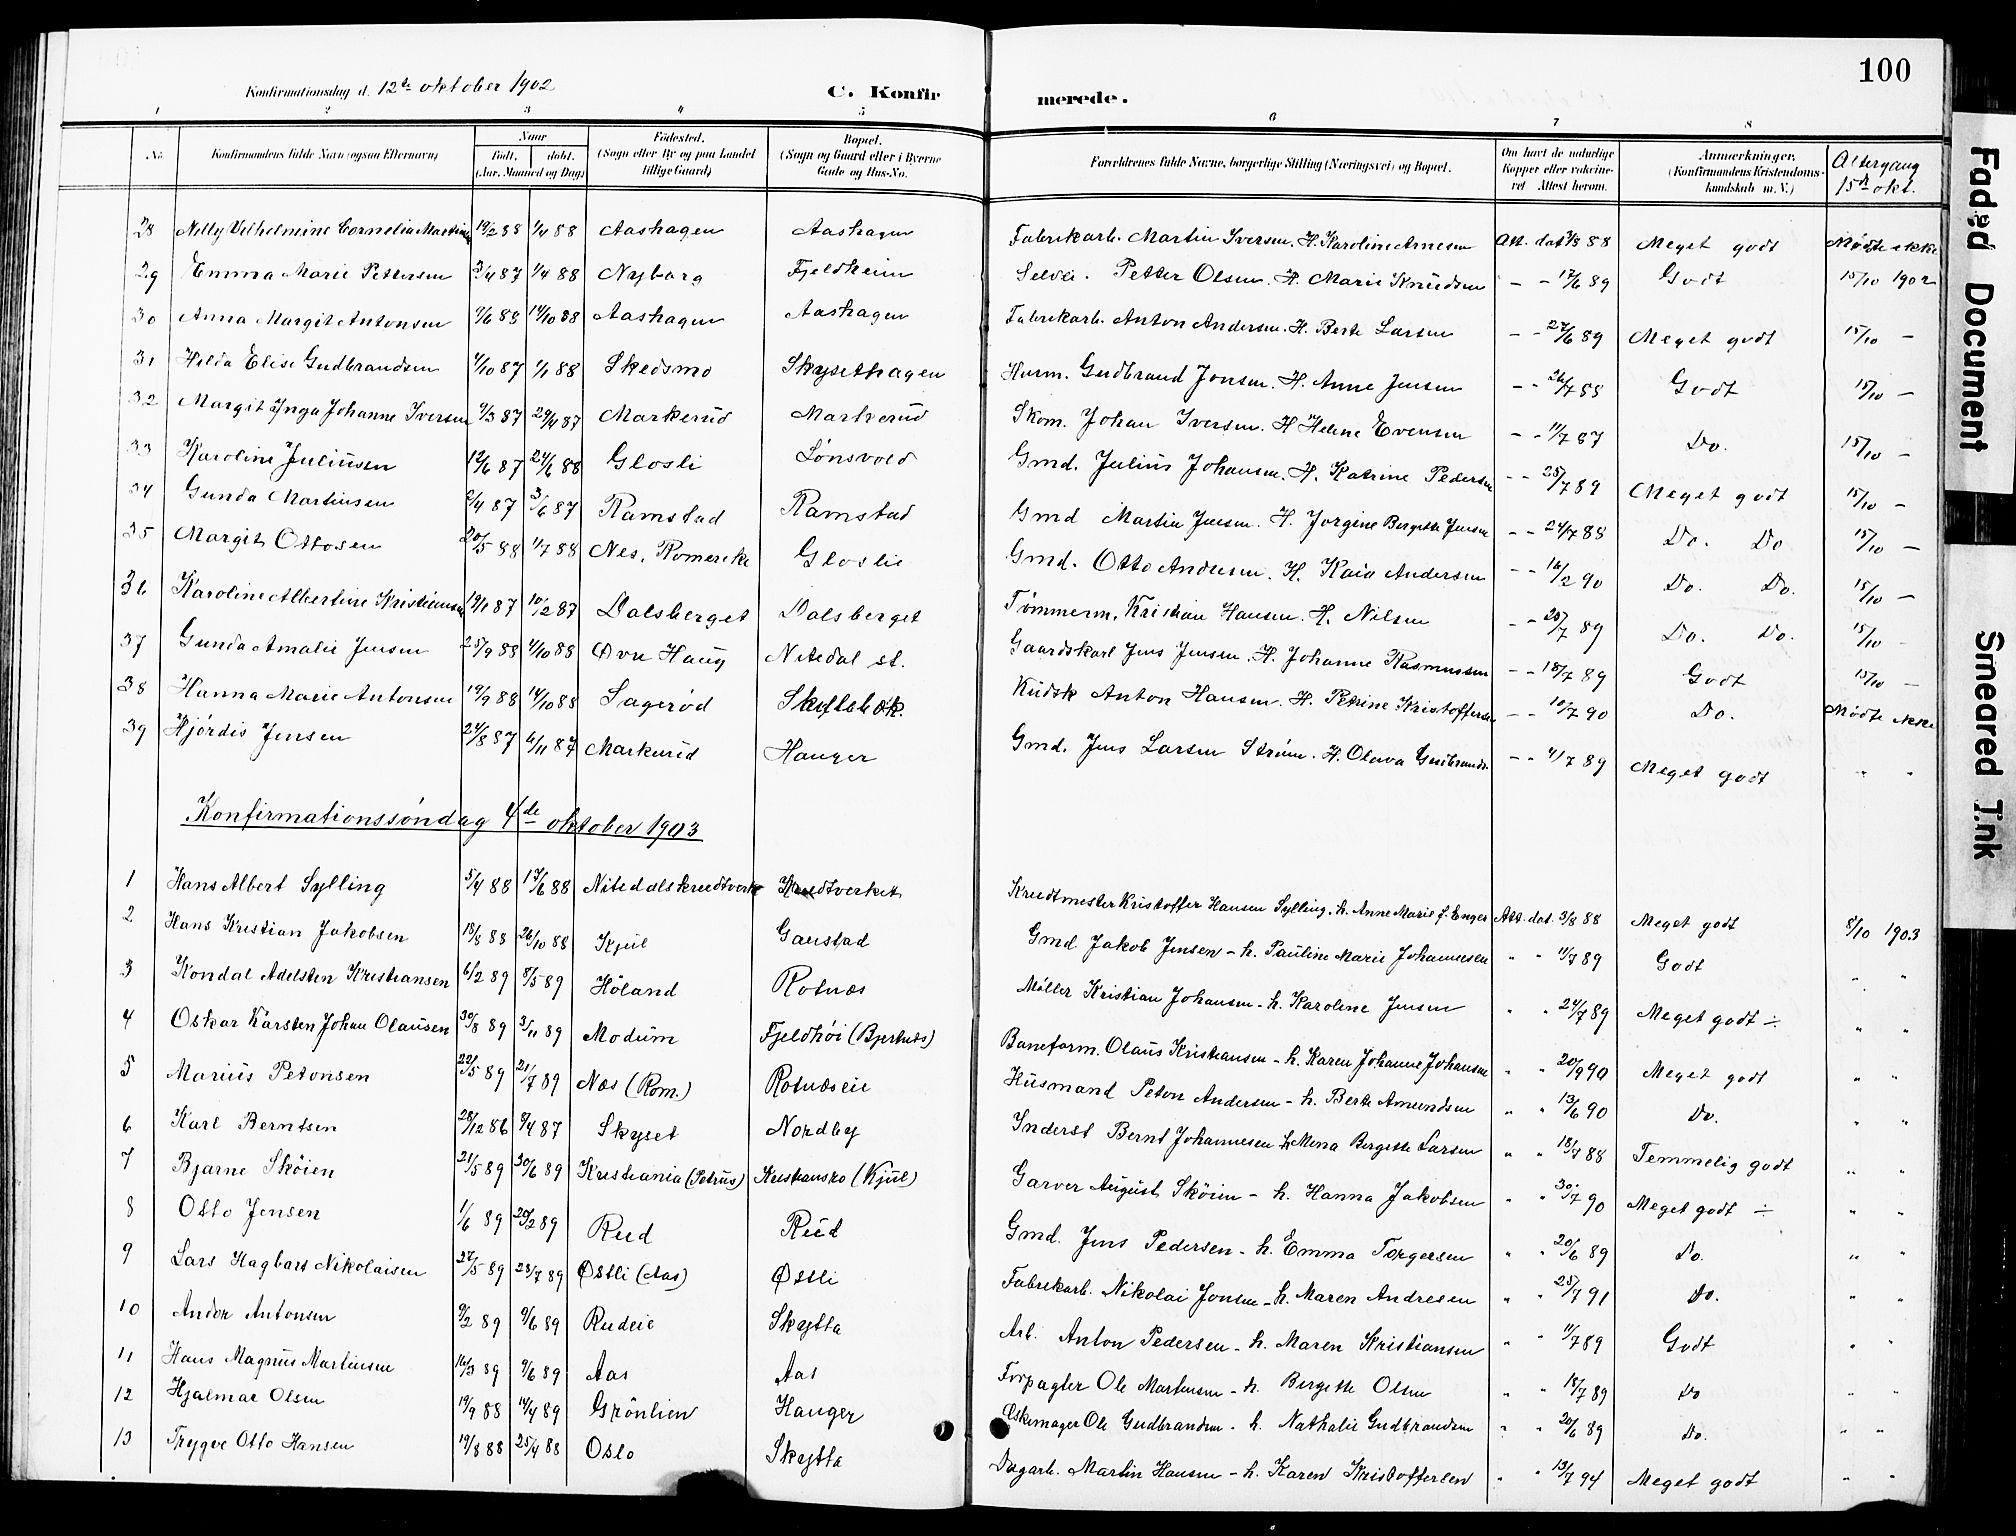 100
Konfirmationsdag d. 12te oktober 1902 C. Konfirmerede.
1 2 3 4 5 6 7 8
No. Konfirmandens fulde Navn (ogsaa Efternavn) Naar født. døbt. (Aar, Maaned og Dag) Fødested. (Sogn eller By og paa Landet tillige Gaard) Bopæl. (Sogn og Gaard eller i Byerne Gade og Hus-No. Forældrenes fulde Navne, borgerlige Stilling (Næringsvei) og Bopæl. Om havt de naturlige Kopper eller vakcineret Attest herom. Anmærkninger. (Konfirmandens Kristendomskundskab m. V.) Altergang 15de okt.
28 Nelly Vilhelmine Cornelia Martinsen 19/2 88 1/4 88 Aashagen Aashagen Fabrikarb. Martin Iversen. H. Karoline Arnesen Att. dat 88 Meget godt Mødte ikke
29 Emma Marie Pettersen 3/4 87 1/4 88 Nyborg Fjeldheim Selvei. Petter Olsen. H. Marie Knudsen - - 17/6 89 Godt 15/10 1902
30 Anna Margit Antonsen 9/6 88 14/10 88 Aashagen Aashagen Fabrikarb. Anton Andersen. H. Berte Larsen - - 27/6 89 Meget godt 15/10 -
31 Hilda Elise Gudbrandsen 4/10 87 1/1 88 Skedsmo Skysethagen Husm. Gudbrand Jonsen. H. Anne Jensen - - 26/7 88 Godt 15/10 -
32 Margit Inga Johanne Iversen 9/3 87 29/4 87 Markerud Markerud Skom. Johan Iversen. H Helene Evensen - - 11/7 87 Do. 15/10 -
33 Karoline Juliussen 12/6 87 24/6 88 Glosli Lønsvold Gmd. Julius Johansen. H. Katrine Pedersen - - 25/7 89 Meget godt 15/10 -
34 Gunda Martinsen 2/4 87 3/6 87 Ramstad Ramstad Gmd Martin Jensen. H. Jorgine Bergette Jensen - - 24/7 88 Do. Do 15/10 -
35 Margit Ottosen 20/5 88 1/7 88 Nes, Romerike Gloslie Gmd. Otto Andersen. H. Kaia Andersen - - 16/2 90 Do. Do. 15/10 -
36 Karoline Albertine Kristiansen 19/1 87 10/2 87 Dalsberget Dalsberget Tømmerm. Kristian Hansen. H. Nilsen - - 25/7 89 Do. Do. 15/10 -
37 Gunda Amalie Jensen 25/9 88 4/10 88 Øvre Haug Nitedal st. Gaardskarl Jens Jensen. H. Johanne Rasmussen - - 18/7 89 Godt 15/10 -
38 Hanna Marie Antonsen 19/9 88 14/10 88 Sagerød Skyllebæk. Kudsk Anton Hansen. H. Petrine Kristoffersen - - 10/7 90 Do. Mødte ikke
39 Hjørdis Jensen 24/8 87 6/11 87 Markerud Hauger Gmd. Jens Larsen Strøm. H. Olava Gudbrands. - - 4/7 89 Meget godt " "
Konfirmationssøndag 4de oktober 1903
1 Hans Albert Sylling 5/4 88 17/6 88 Nitedalskrudtverk Krudtverket Krudtmester Kristoffer Hansen Sylling. h. Anne Marie f. Enger Att. dat. 3/8 88 Meget godt 8/10 1903
2 Hans Kristian Jakobsen 18/8 88 26/10 88 Kjul Gaustad Gmd Jakob Jensen - h. Pauline Marie Johannesen " " 11/7 89 Godt " "
3 Kondal Adelsten Kristiansen 6/2 89 8/5 89 Höland Rotnæs Møller Kristian Johansen - h. Karoline Jensen " " 24/7 89 Meget godt ÷ " "
4 Oskar Karsten Johan Olausen 30/8 89 3/11 89 Modum Fjeldhøi (Bjerknes) Baneform. Olaus Kristiansen - h. Karen Johanne Johansen " " 20/9 90 Meget godt " "
5 Marius Petonsen 22/5 89 21/7 89 Næs (Rom.) Rotnæseie Husmand Peton Andersen - h. Berte Amundsen " " 13/6 90 Do. " "
6 Karl Berntsen 28/12 86 8/4 87 Skyset Nordby Inderst Bernt Johannesen h. Mena Bergette Larsen " " 18/7 88 Temmelig godt " "
7 Bjarne Sköien 21/5 89 30/6 89 Kristiania (Petrus) Kristiansro (Kjul) Garver August Sköien - h. Hanna Jakobsen " " 30/7 90 Meget godt ÷ " "
8 Otto Jensen 1/6 89 20/2 89 Rud Rud Gmd. Jens Pedersen - h. Emma Torgersen " " 20/6 89 Do. " "
9 Lars Hagbart Nikolaisen 27/5 89 28/7 89 Østli (Aas) Østli Fabrikarb. Nikolai Jonsen - h. Maren Andresen " " 25/7 91 Do. " "
10 Andor Antonsen 9/2 89 9/6 89 Rudeie Skytta Arb. Anton Pedersen - h. Maren Kristiansen " " 11/7 89 Godt " "
11 Hans Magnus Martinsen 16/3 89 9/6 89 Aas Aas Forpagter Ole Martinsen - h. Bergette Olsen " " 18/7 89 Do " "
12 Hjalmar Olsen 19/9 88 14/4 89 Grönlien Hauger Eskemager Ole Gudbrandsen - h. Nathalie Gudbrandsen " " 20/6 89 Do. " "
13 Trygve Otto Hansen 19/8 88 25/4 88 Oslo Skytta Dagarb. Martin Hansen - h. Karen Kristoffersen " " 13/7 94 Meget godt " "
Faded Document
Smeared Ink